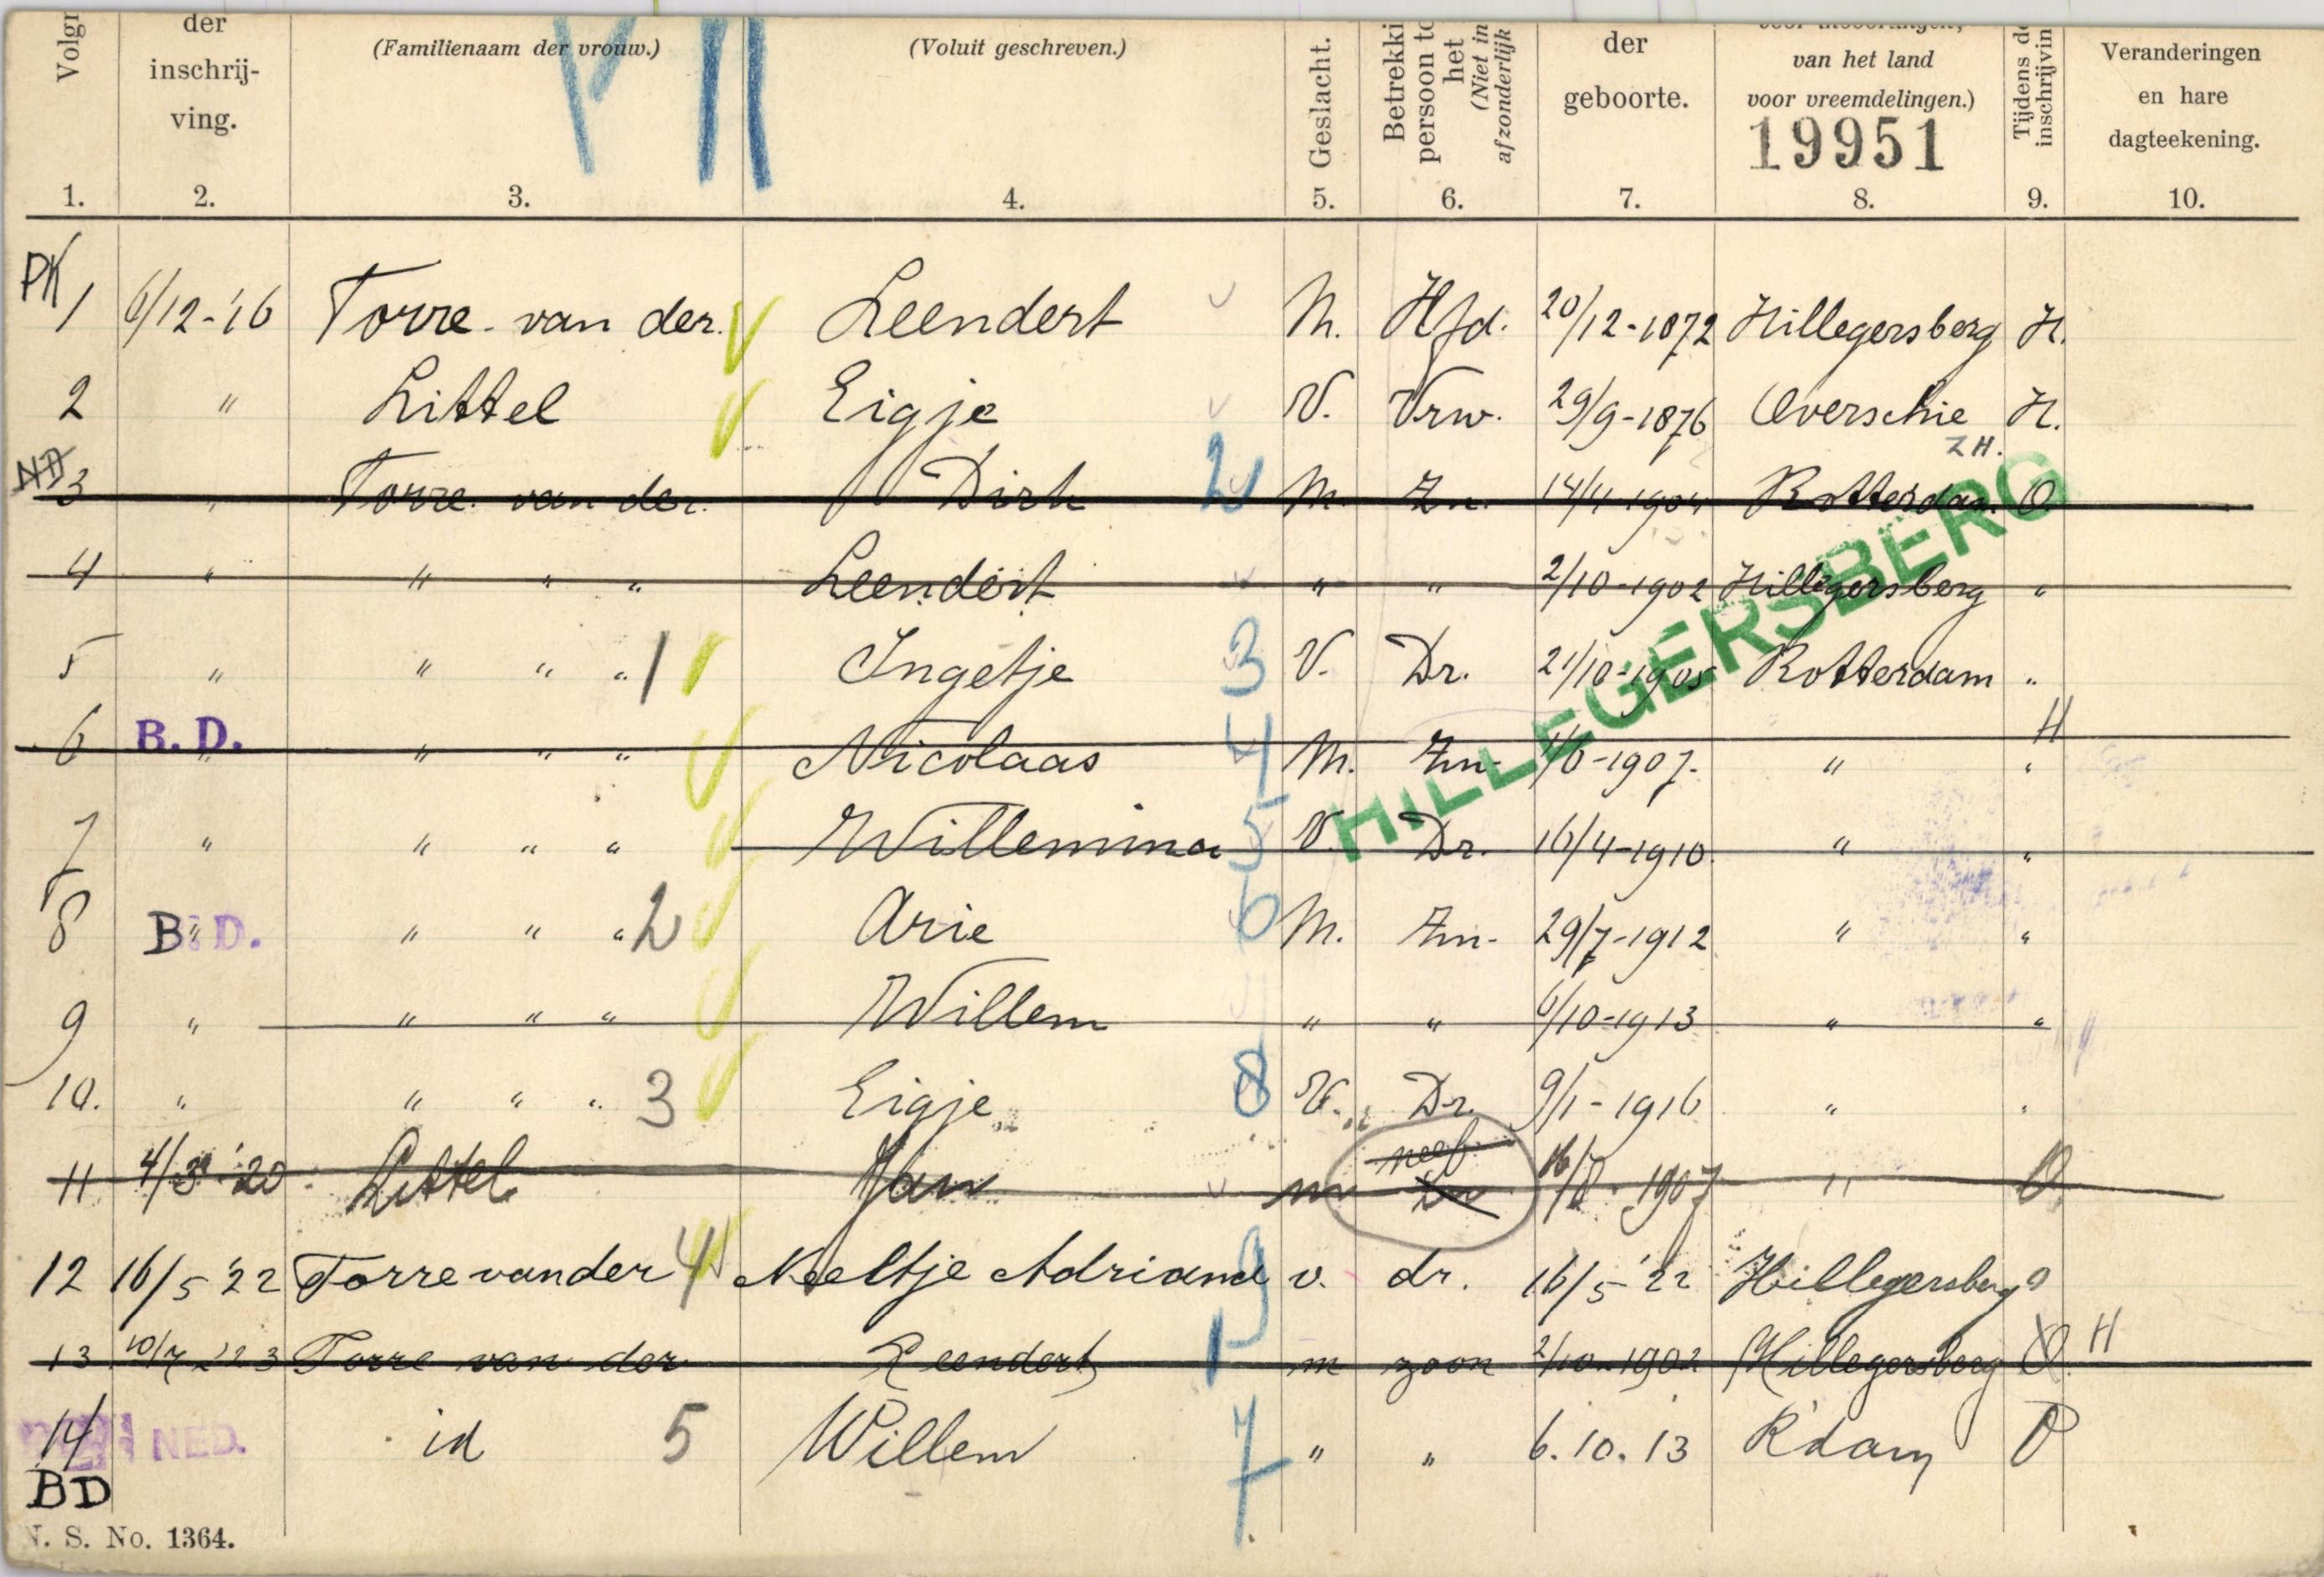 Volgn der inschrij-ving. (Familienaam der vrouw.) (Voluit geschreven.) Geslacht. Betrekki persoon to het (Niet in afzonderlijk der geboorte. van het land voor vreemdelingen.) Tijdens de inschrijvin Veranderingen en hare dagteekening.
19951
1. 2. 3. 4. 5. 6. 7. 8. 9. 10.
PK 1 6/12-'16 Torre van der. Leendert M. Hfd. 20/12-1872 Hillegersberg H.
2 " Littel Eigje V. Vrw. 29/9-1876 Overschie Z.H. H.
ND 3 " Torre van der. Dirk 2 M. Zn. 14/4-1904 Rotterdam O.
4 " " " " Leendert " " 2/10-1902 Hillegersberg "
HILLEGERSBERG
5 " " " " 1 Ingetje 3 V. Dr. 21/10-1905 Rotterdam "
6 B.D. " " " " Nicolaas 4 M. Zn. -1907. " " H
7 " " " " Willemina 5 V. Dr. 16/4-1910. " "
8 B.D. " " " " 2 Arie 6 M. Zn. 29/7-1912 " "
9 " " " " Willem " " 6/10-1913 " "
10. " " " " 3 Eigje 8 V. Dr. 9/1-1916 " "
11 4/3 '20 Littel Jan m neef Zn 16/8-1907 " O
12 16/5 '22 Torre van der 4 Neeltje Adriana 9 v. dr. 16/5 '22 Hillegersberg O
13 10/7 '23 Torre van der Leendert 1 m zoon 2/10-1902 Hillegersberg O H
14 NED. id 5 Willem 7 " " 6.10.13 R'dam O
BD
N. S. No. 1364.